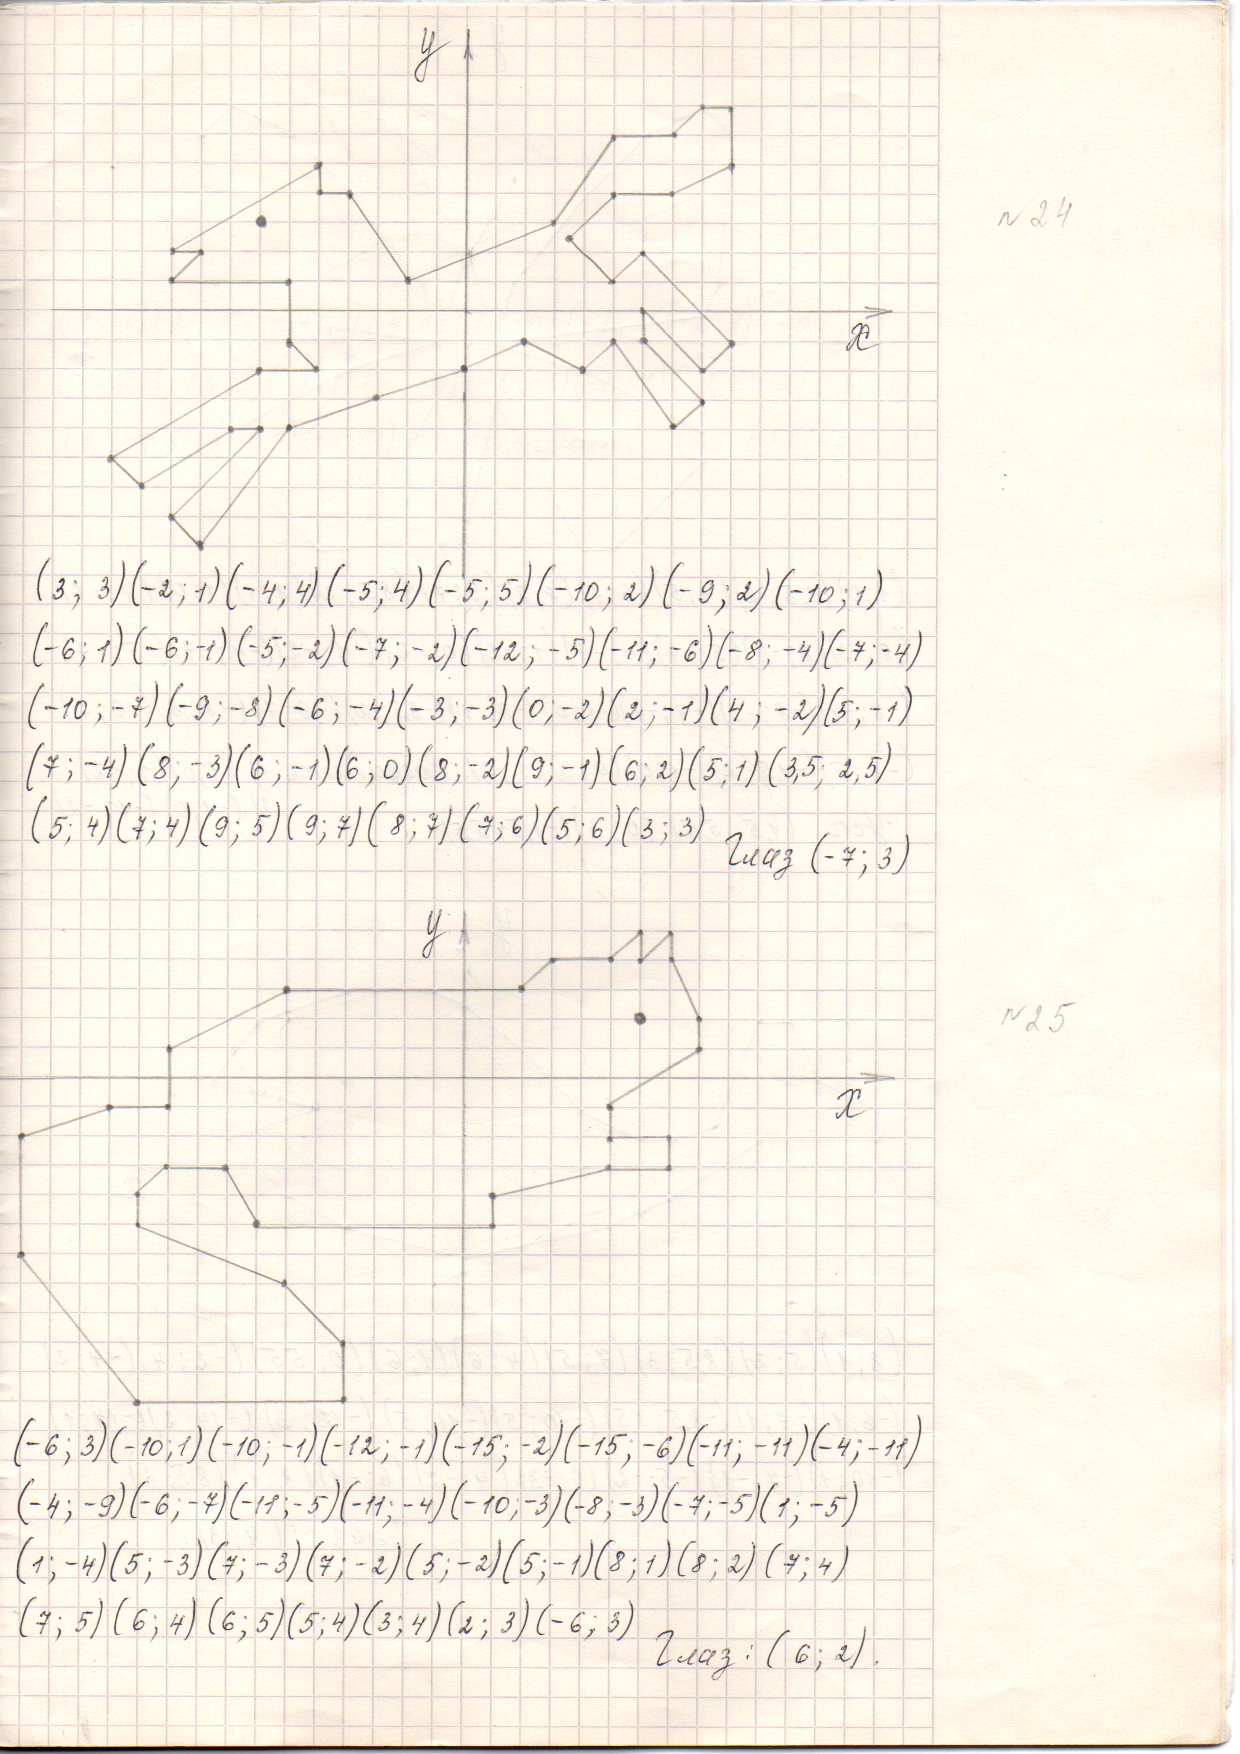 y
№ 24
x
(3; 3)(-2; 1)(-4; 4)(-5; 4)(-5; 5)(-10; 2)(-9; 2)(-10; 1)
(-6; 1)(-6; -1)(-5; -2)(-7; -2)(-12; -5)(-11; -6)(-8; -4)(-7; -4)
(-10; -7)(-9; -8)(-6; -4)(-3; -3)(0; -2)(2; -1)(4; -2)(5; -1)
(7; -4)(8; -3)(6; -1)(6; 0)(8; -2)(9; -1)(6; 2)(5; 1)(3,5; 2,5)
(5; 4)(7; 4)(9; 5)(9; 7)(8; 7)(7; 6)(5; 6)(3; 3)
Глаз (-7; 3)
y
№ 25
x
(-6; 3)(-10; 1)(-10; -1)(-12; -1)(-15; -2)(-15; -6)(-11; -11)(-4; -11)
(-4; -9)(-6; -7)(-11; -5)(-11; -4)(-10; -3)(-8; -3)(-7; -5)(1; -5)
(1; -4)(5; -3)(7; -3)(7; -2)(5; -2)(5; -1)(8; 1)(8; 2)(7; 4)
(7; 5)(6; 4)(6; 5)(5; 4)(3; 4)(2; 3)(-6; 3)
Глаз: (6; 2).